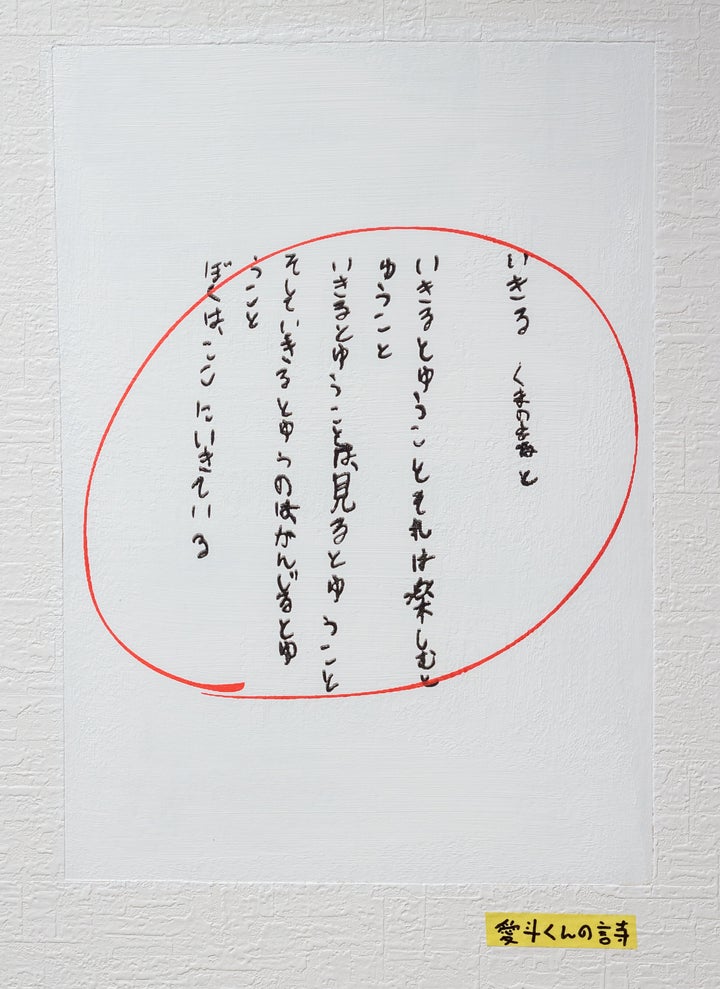 いきる くまの愛と
いきるとゆうことそれは楽しむと
ゆうこと
いきるとゆうことは、見るとゆうこと
そしていきるとゆうのはかんじるとゆ
うこと
ぼくは、ここにいきている
愛斗くんの詩